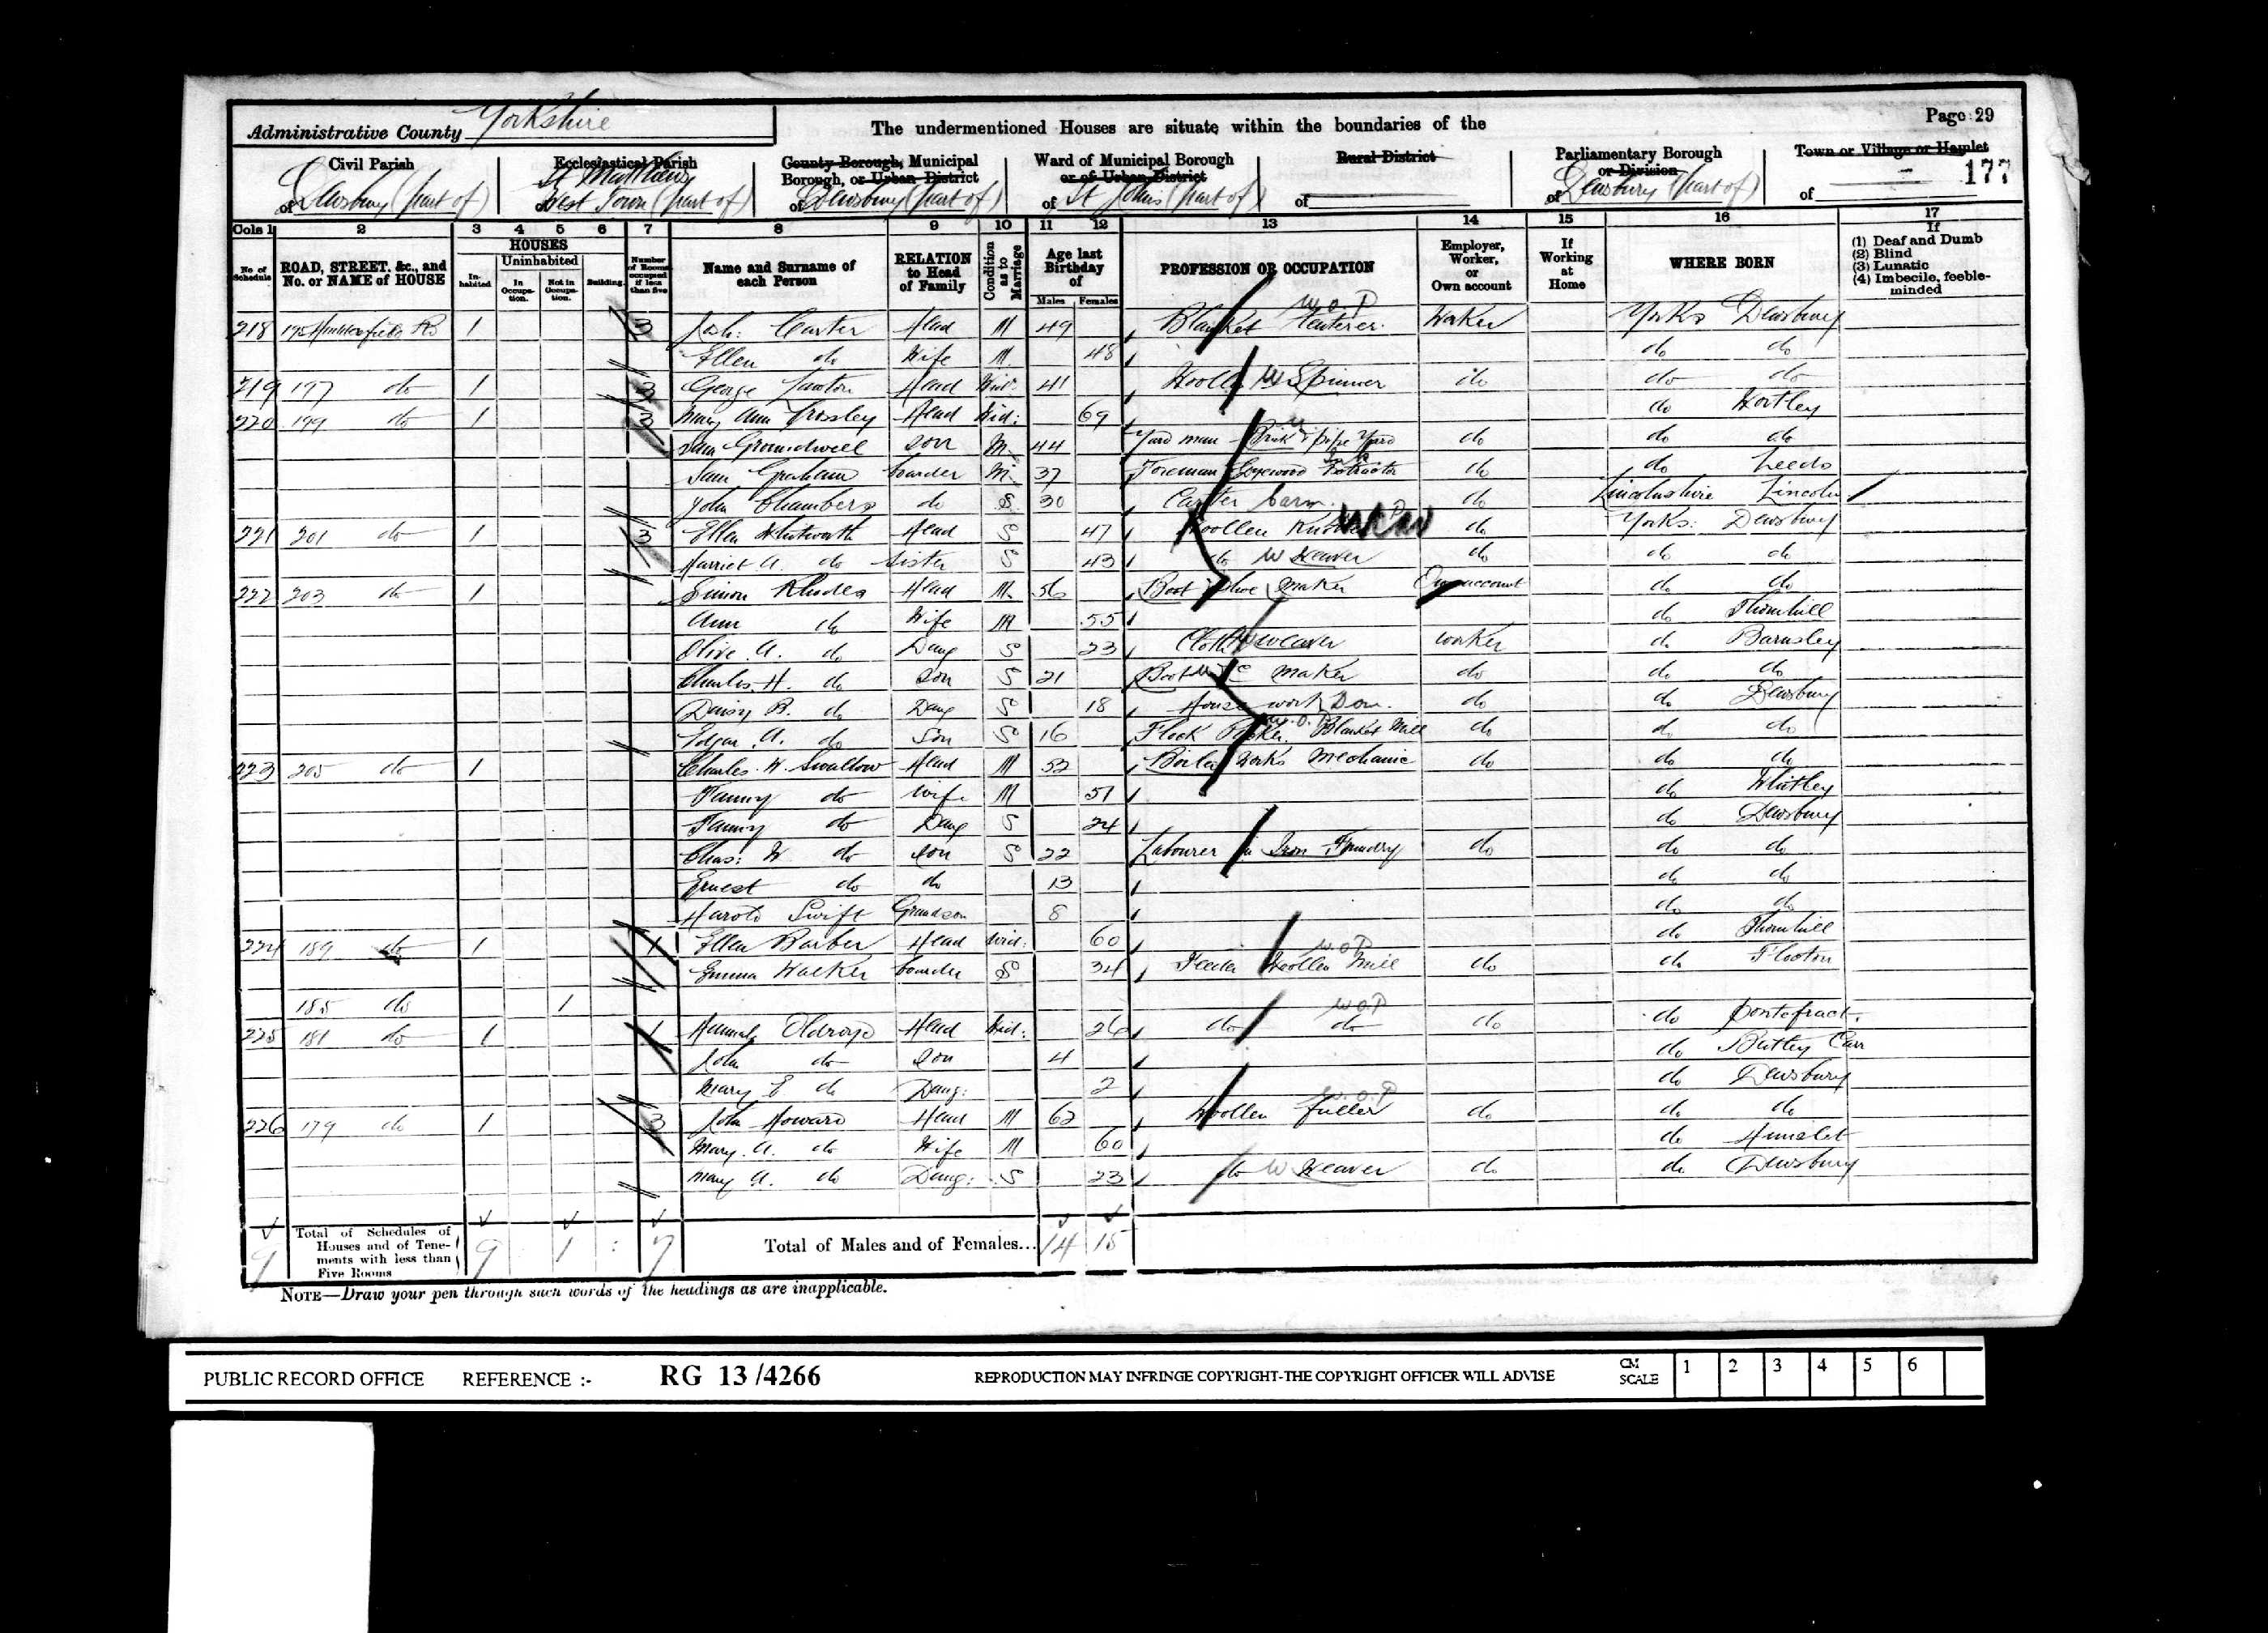 Administrative County Yorkshire
The undermentioned Houses are situate within the boundaries of the
Page 29
Civil Parish
Ecclesiastical Parish
County Borough, Municipal Borough, or Urban District
Ward of Municipal Borough or of Urban District
Rural District
Parliamentary Borough or Division
Town or Village or Hamlet
of Dewsbury (part of)
St Matthew West Town (part of)
of Dewsbury (part of)
of St Johns (part of)
of
of Dewsbury (part of)
of -
177
Cols 1 2 3 4 5 6 7 8 9 10 11 12 13 14 15 16 17
No of Schedule
ROAD, STREET, &c., and No. or NAME of HOUSE
HOUSES
Inhabited
Uninhabited
In Occupation.
Not in Occupation.
Building
Number of Rooms occupied if less than five
Name and Surname of each Person
RELATION to Head of Family
Condition as to Marriage
Age last Birthday of
Males Females
PROFESSION OR OCCUPATION
Employer, Worker, or Own account
If Working at Home
WHERE BORN
If
(1) Deaf and Dumb
(2) Blind
(3) Lunatic
(4) Imbecile, feeble-minded
218 195 Huddersfield Rd 1 3 Josh: Carter Head M 49 Blanket Tenterer W.O.P Worker Yorks Dewsbury
Ellen do Wife M 48 do do
219 197 do 1 3 George Lawton Head Wid: 41 Woollen W Spinner do do do
220 199 do 1 3 Mary Ann Crossley Head Wid: 69 do Wortley
Sam Groundwell Son M 44 Yard man Brick & pipe Yard do do do
Sam Graham boarder M 37 Foreman Logwood Extractor do do Leeds
John Chambers do S 30 Carter do Lincolnshire Lincoln
221 201 do 1 3 Ellen Whitworth Head S 47 Woollen do Yorks: Dewsbury
Harriet A. do Sister S 43 do W Weaver do do do
222 203 do 1 Simon Rhodes Head M 56 Boot & Shoe Maker Own account do do
Ann do Wife M 55 do Thornhill
Olive A. do Daug S 23 Cloth W weaver worker do Barnsley
Charles H. do Son S 21 Boot maker do do do
Daisy B. do Daug S 18 House work Dom. do do Dewsbury
Edgar A. do Son S 16 Flock W.O.P. Blanket Mill do do do
223 205 do 1 Charles W. Swallow Head M 52 Boiler Works Mechanic do do do
Fanny do wife M 51 do Whitley
Fanny do Daug S 24 do Dewsbury
Chas: W do Son S 22 Labourer in Iron Foundry do do do
Ernest do do 13 do do
Harold Swift Grandson 8 do do
224 189 do 1 1 Ellen Barber Head Wid: 60 do Thornhill
Emma Walker boarder S 34 Feeder Woollen Mill W.O.P do do Flocton
185 do 1
225 181 do 1 1 Hannah Oldroyd Head Wid: 26 do do W.O.P do do Pontefract
John do Son 4 do Batley Carr
Mary E do Daug: 2 do Dewsbury
226 179 do 1 3 John Howard Head M 62 Woollen fuller W.O.P do do do
Mary A. do Wife M 60 do Hunslet
Mary A. do Daug: S 23 do W Weaver do do Dewsbury
9 Total of Schedules of Houses and of Tenements with less than Five Rooms 9 1 7 Total of Males and of Females... 14 15
NOTE—Draw your pen through such words of the headings as are inapplicable.
PUBLIC RECORD OFFICE REFERENCE :- RG 13/4266 REPRODUCTION MAY INFRINGE COPYRIGHT-THE COPYRIGHT OFFICER WILL ADVISE CM SCALE 1 2 3 4 5 6